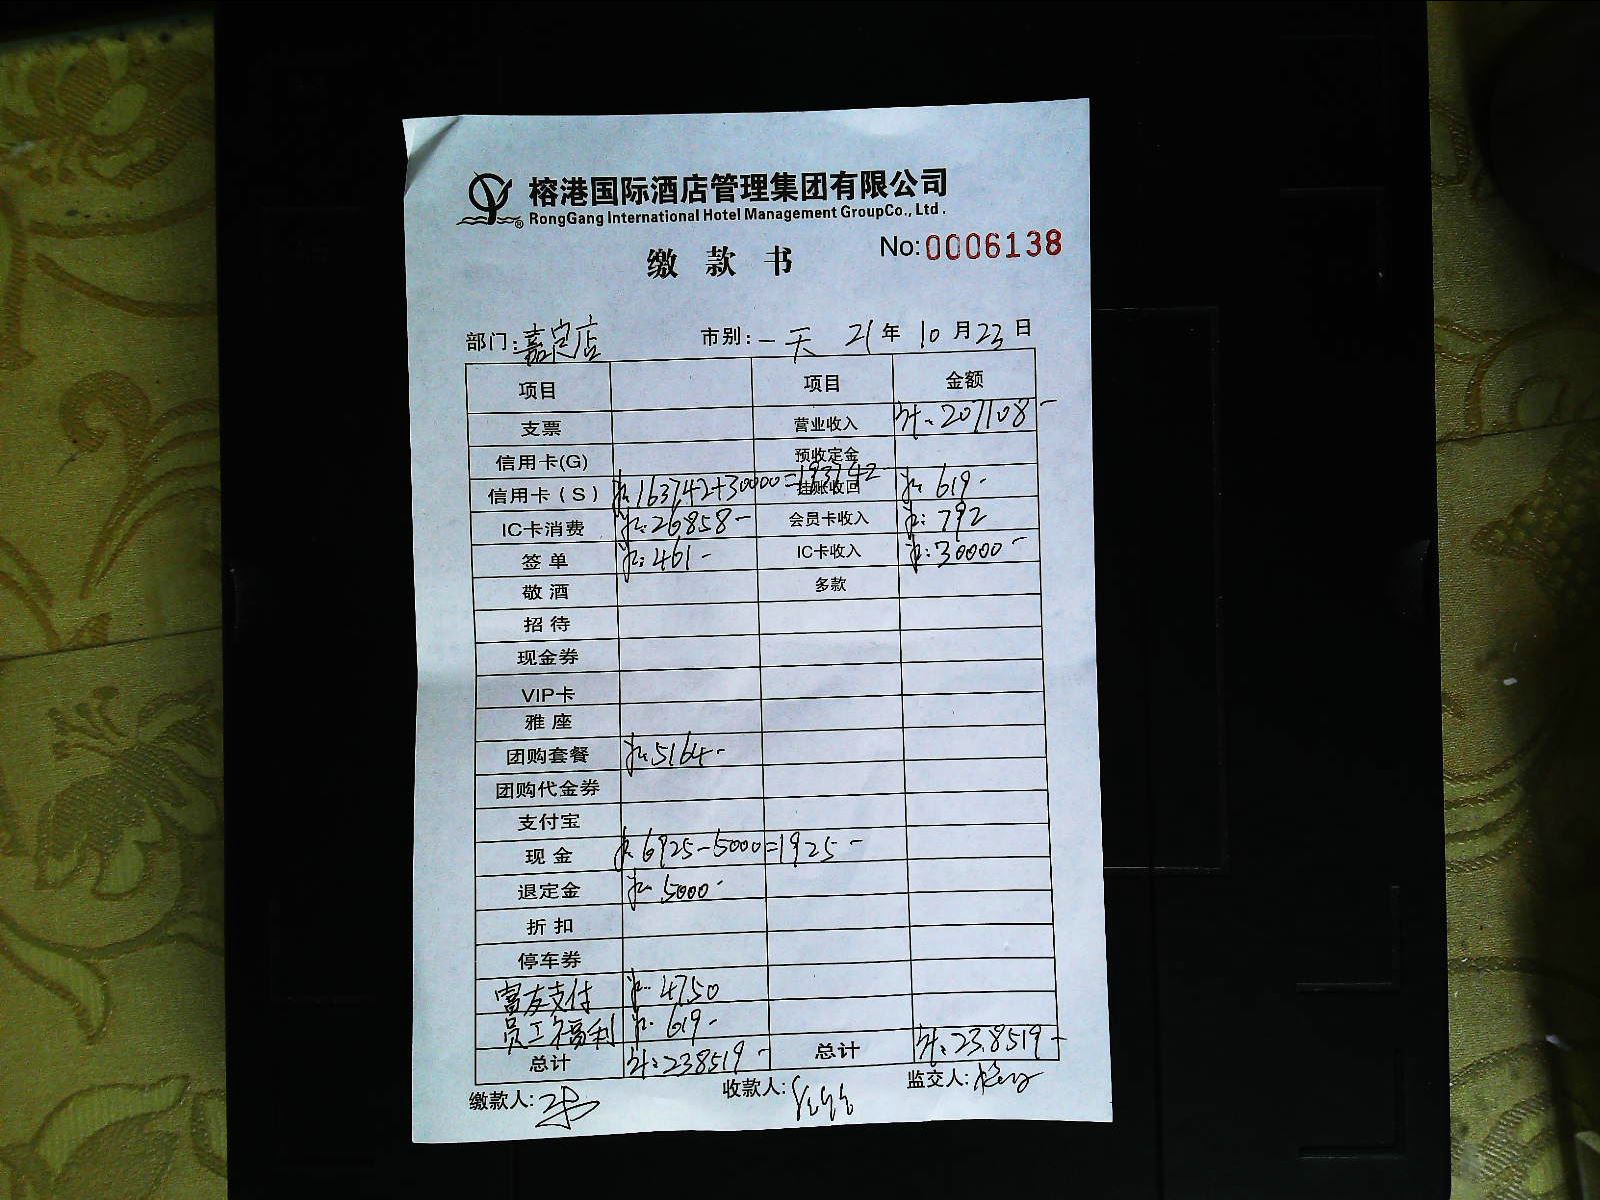 榕港国际酒店管理集团有限公司
RongGang International Hotel Management GroupCo., Ltd.
缴款书 No:0006138
部门:嘉定店 市别:一天 21年10月23日
项目 项目 金额
支票 营业收入 计:207108-
信用卡(G) 预收定金
信用卡(S) 163742+30000=193742- 挂账收回 619-
IC卡消费 26858- 会员卡收入 792
签单 461- IC卡收入 30000-
敬酒 多款
招待
现金券
VIP卡
雅座
团购套餐 5164-
团购代金券
支付宝
现金 6925-5000=1925-
退定金 5000-
折扣
停车券
富友支付 4750
员工福利 619-
总计 计:238519- 总计 计:238519-
缴款人: 收款人: 监交人: